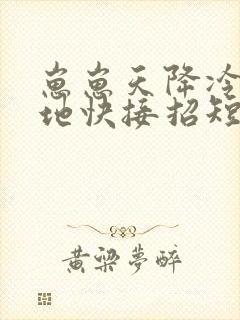 崽崽天降冷
地快接招短
黄梁夢醉